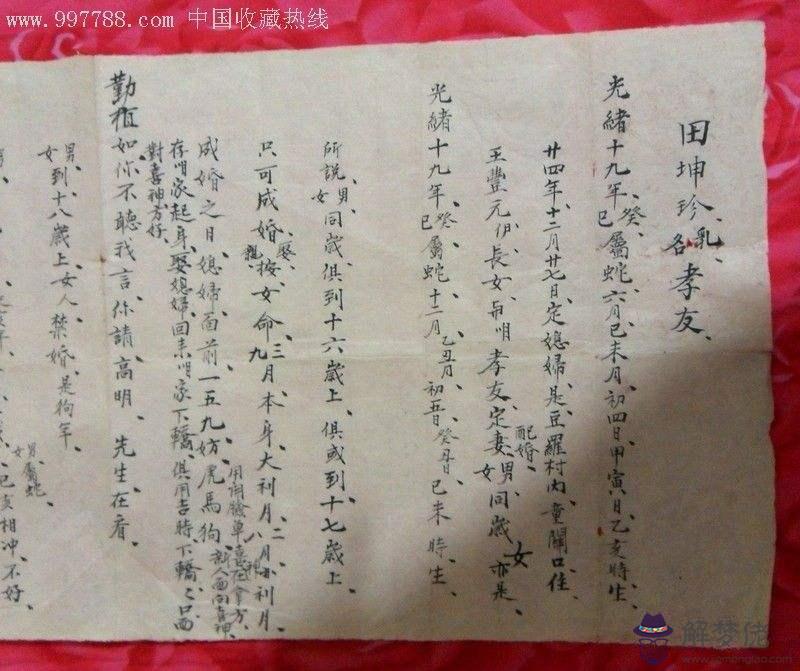 www.997788.com 中国收藏热线
田坤珍、乳名孝友、
光緒十九年、癸巳屬蛇、六月己未月初四日、甲寅日、乙亥時生、
廿四年、十二月廿七日、定媳婦、是豆羅村內童關口住、
王豐元伊長女、与咱孝友定妻、配婚、男女同歲、亦是女
光緒十九年、癸巳屬蛇、十二月乙丑月、初五日癸丑日、己未時生、
所説男女同歲、俱到十六歲上、俱或到十七歲上、
只可成婚、娶親按女命、三月九月本身大利月、二月八月小利月、
成婚之日、媳婦面前一五九妨虎馬狗、
存咱家起身、娶媳婦回來咱家下轎、俱用吉時下轎、口西
對喜神方好、
勤植如你不聽我言、你請高明先生在看、
男女到十八歲上、女人禁婚、是狗年、
男女屬蛇、
巳亥相冲、不好、
解梦佬
www.jiemenglao.com